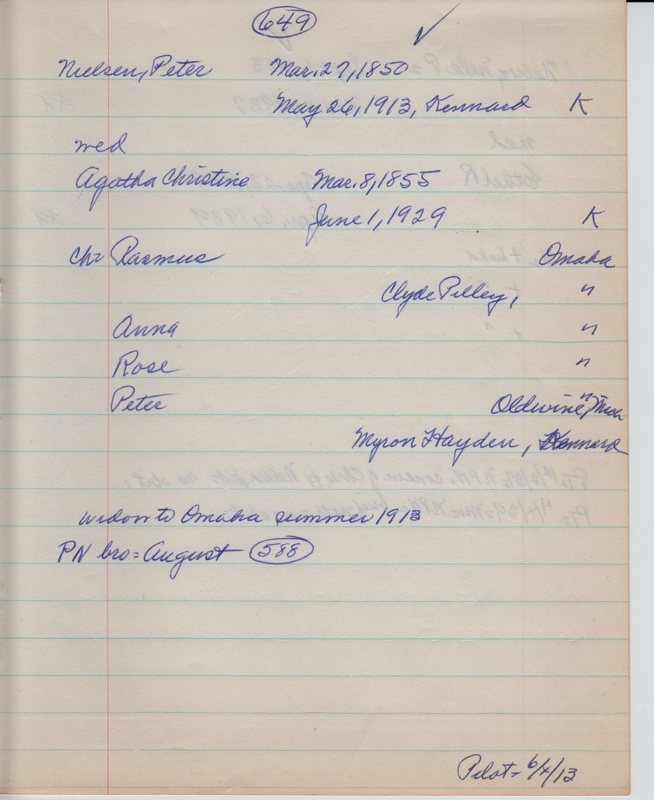 649 ✓
Nielsen, Peter Mar. 27, 1850
May 26, 1913, Kennard K
wed
Agatha Christine Mar. 8, 1855
June 1, 1929 K
Ch= Rasmus Omaha
Clyde Pilley, "
Anna "
Rose "
Peter "
Oldwine, Mich
Myron Hayden, Kennard
widow to Omaha summer 1913
PN bro = August 588
Pilot = 6/4/13